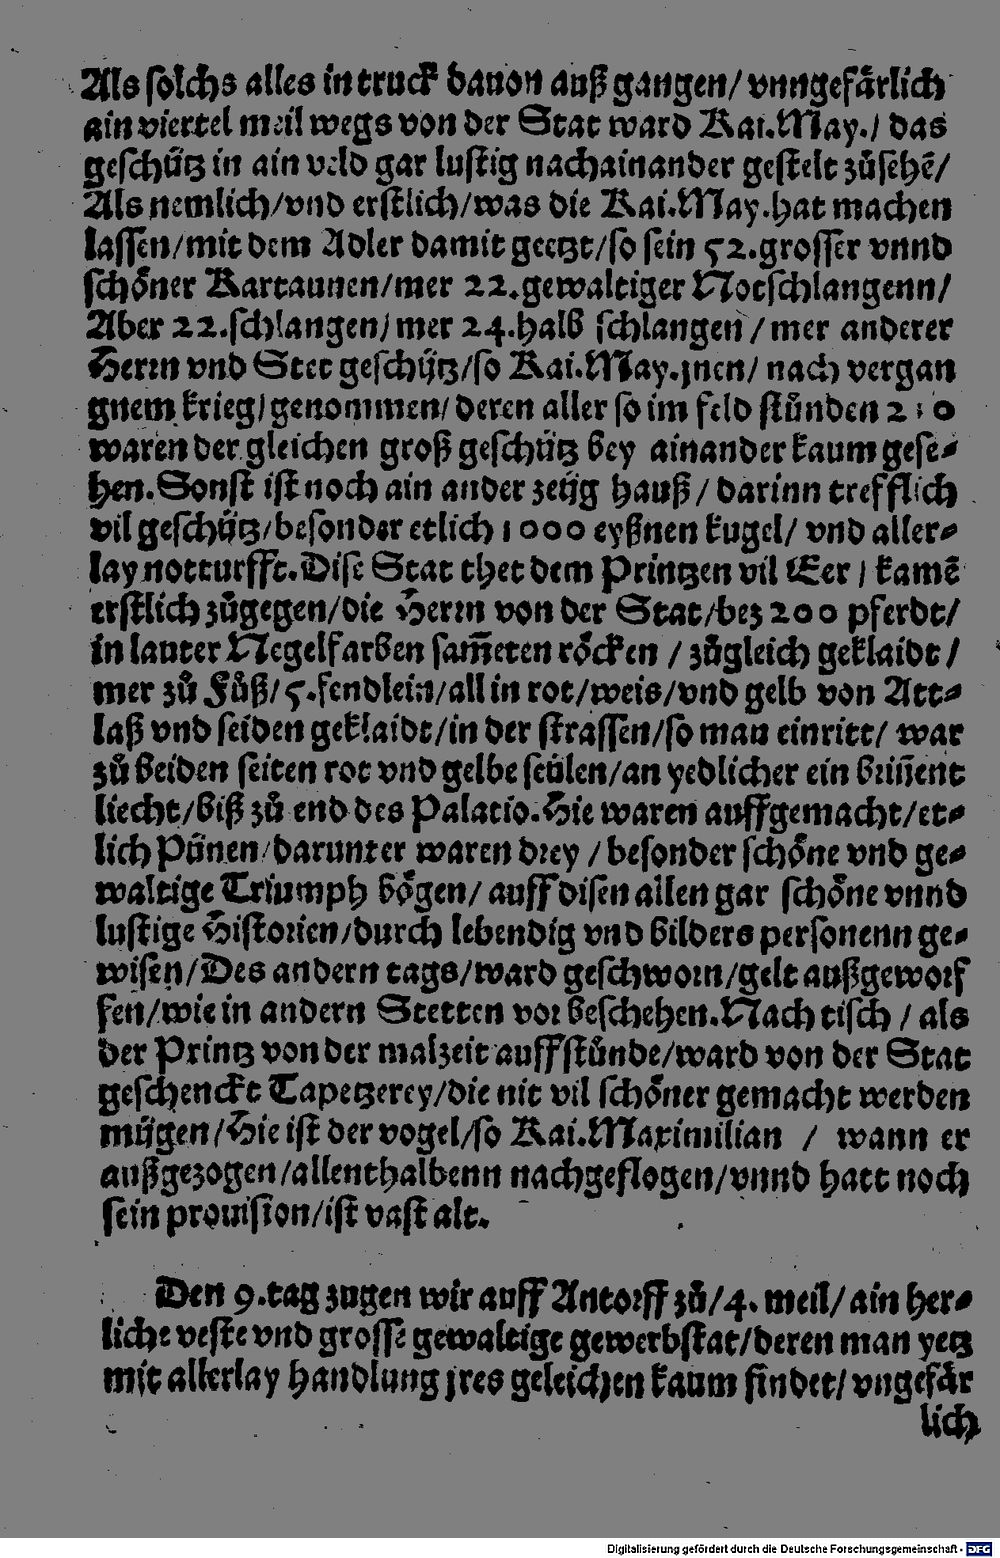 Als solchs alles in truck dauon auß gangen/ vnngefärlich
ain viertel meil wegs von der Stat ward Kai.May./ das
geschütz in ain veld gar lustig nachainander gestelt zůsehē/
Als nemlich/vnd erstlich/was die Kai.May.hat machen
lassen/mit dem Adler damit geetzt/so sein 52.grosser vnnd
schöner Kartaunen/mer 22.gewaltiger Notschlangenn/
Aber 22.schlangen/ mer 24.halb schlangen / mer anderer
Herrn vnd Stet geschütz/so Kai.May.jnen/ nach vergan
gnem krieg/genommen/ deren aller so im feld stůnden
waren der gleichen groß geschütz bey ainander kaum gese⸗
hen.Sonst ist noch ain ander zeüg hauß / darinn trefflich
vil geschütz/besonder etlich 1000 eyßnen kugel/ vnd aller⸗
lay notturfft.Dise Stat thet dem Printzen vil Eer / kamē
erstlich zůgegen/die Herrn von der Stat/bez 200 pferdt/
in lauter Negelfarben sam̄eten röcken / zůgleich geklaidt /
mer zů Fůß/ 5.fendlein/all in rot/weis/vnd gelb von Att⸗
laß vnd seiden geklaidt/in der strassen/so man einritt/ war
zů beiden seiten rot vnd gelbe seülen/an yedlicher ein brin̄ent
liecht/biß zů end des Palatio.Hie waren auffgemacht/et⸗
lich Pünen/darunter waren drey / besonder schöne vnd ge⸗
waltige Triumph bögen/ auff disen allen gar schöne vnnd
lustige Historien/durch lebendig vnd bilders personenn ge⸗
wisen/Des andern tags/ward geschworn/gelt außgeworf
fen/wie in andern Stetten vor beschehen.Nach tisch / als
der Printz von der malzeit auffstůnde/ward von der Stat
geschenckt Tapetzerey/die nit vil schöner gemacht werden
mügen/Hie ist der vogel/so Kai.Maximilian / wann er
außgezogen/allenthalbenn nachgeflogen/vnnd hatt noch
sein prouision/ist vast alt.
Den 9.tag zugen wir auff Antorff zů/4. meil/ ain her⸗
liche veste vnd grosse gewaltige gewerbstat/deren man yetz
mit allerlay handlung jres geleichen kaum findet/ vngefär
lich
Digitalisierung gefördert durch die Deutsche Forschungsgemeinschaft - DFG